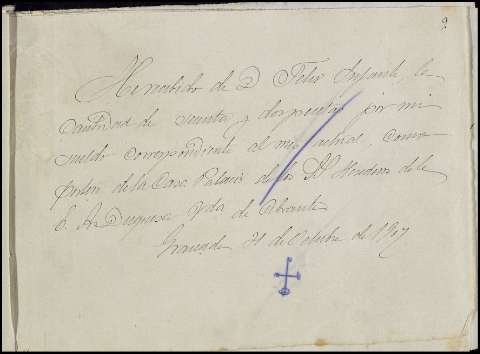 9
He recibido de D. Felix Infante, la
cantidad de sesenta y dos pesetas por mi
sueldo correspondiente al mes actual, como
Portero de la Casa Palacio de los Herederos de la
E. Duquesa Vda de Abrantes
Granada 31 de Octubre de 1907